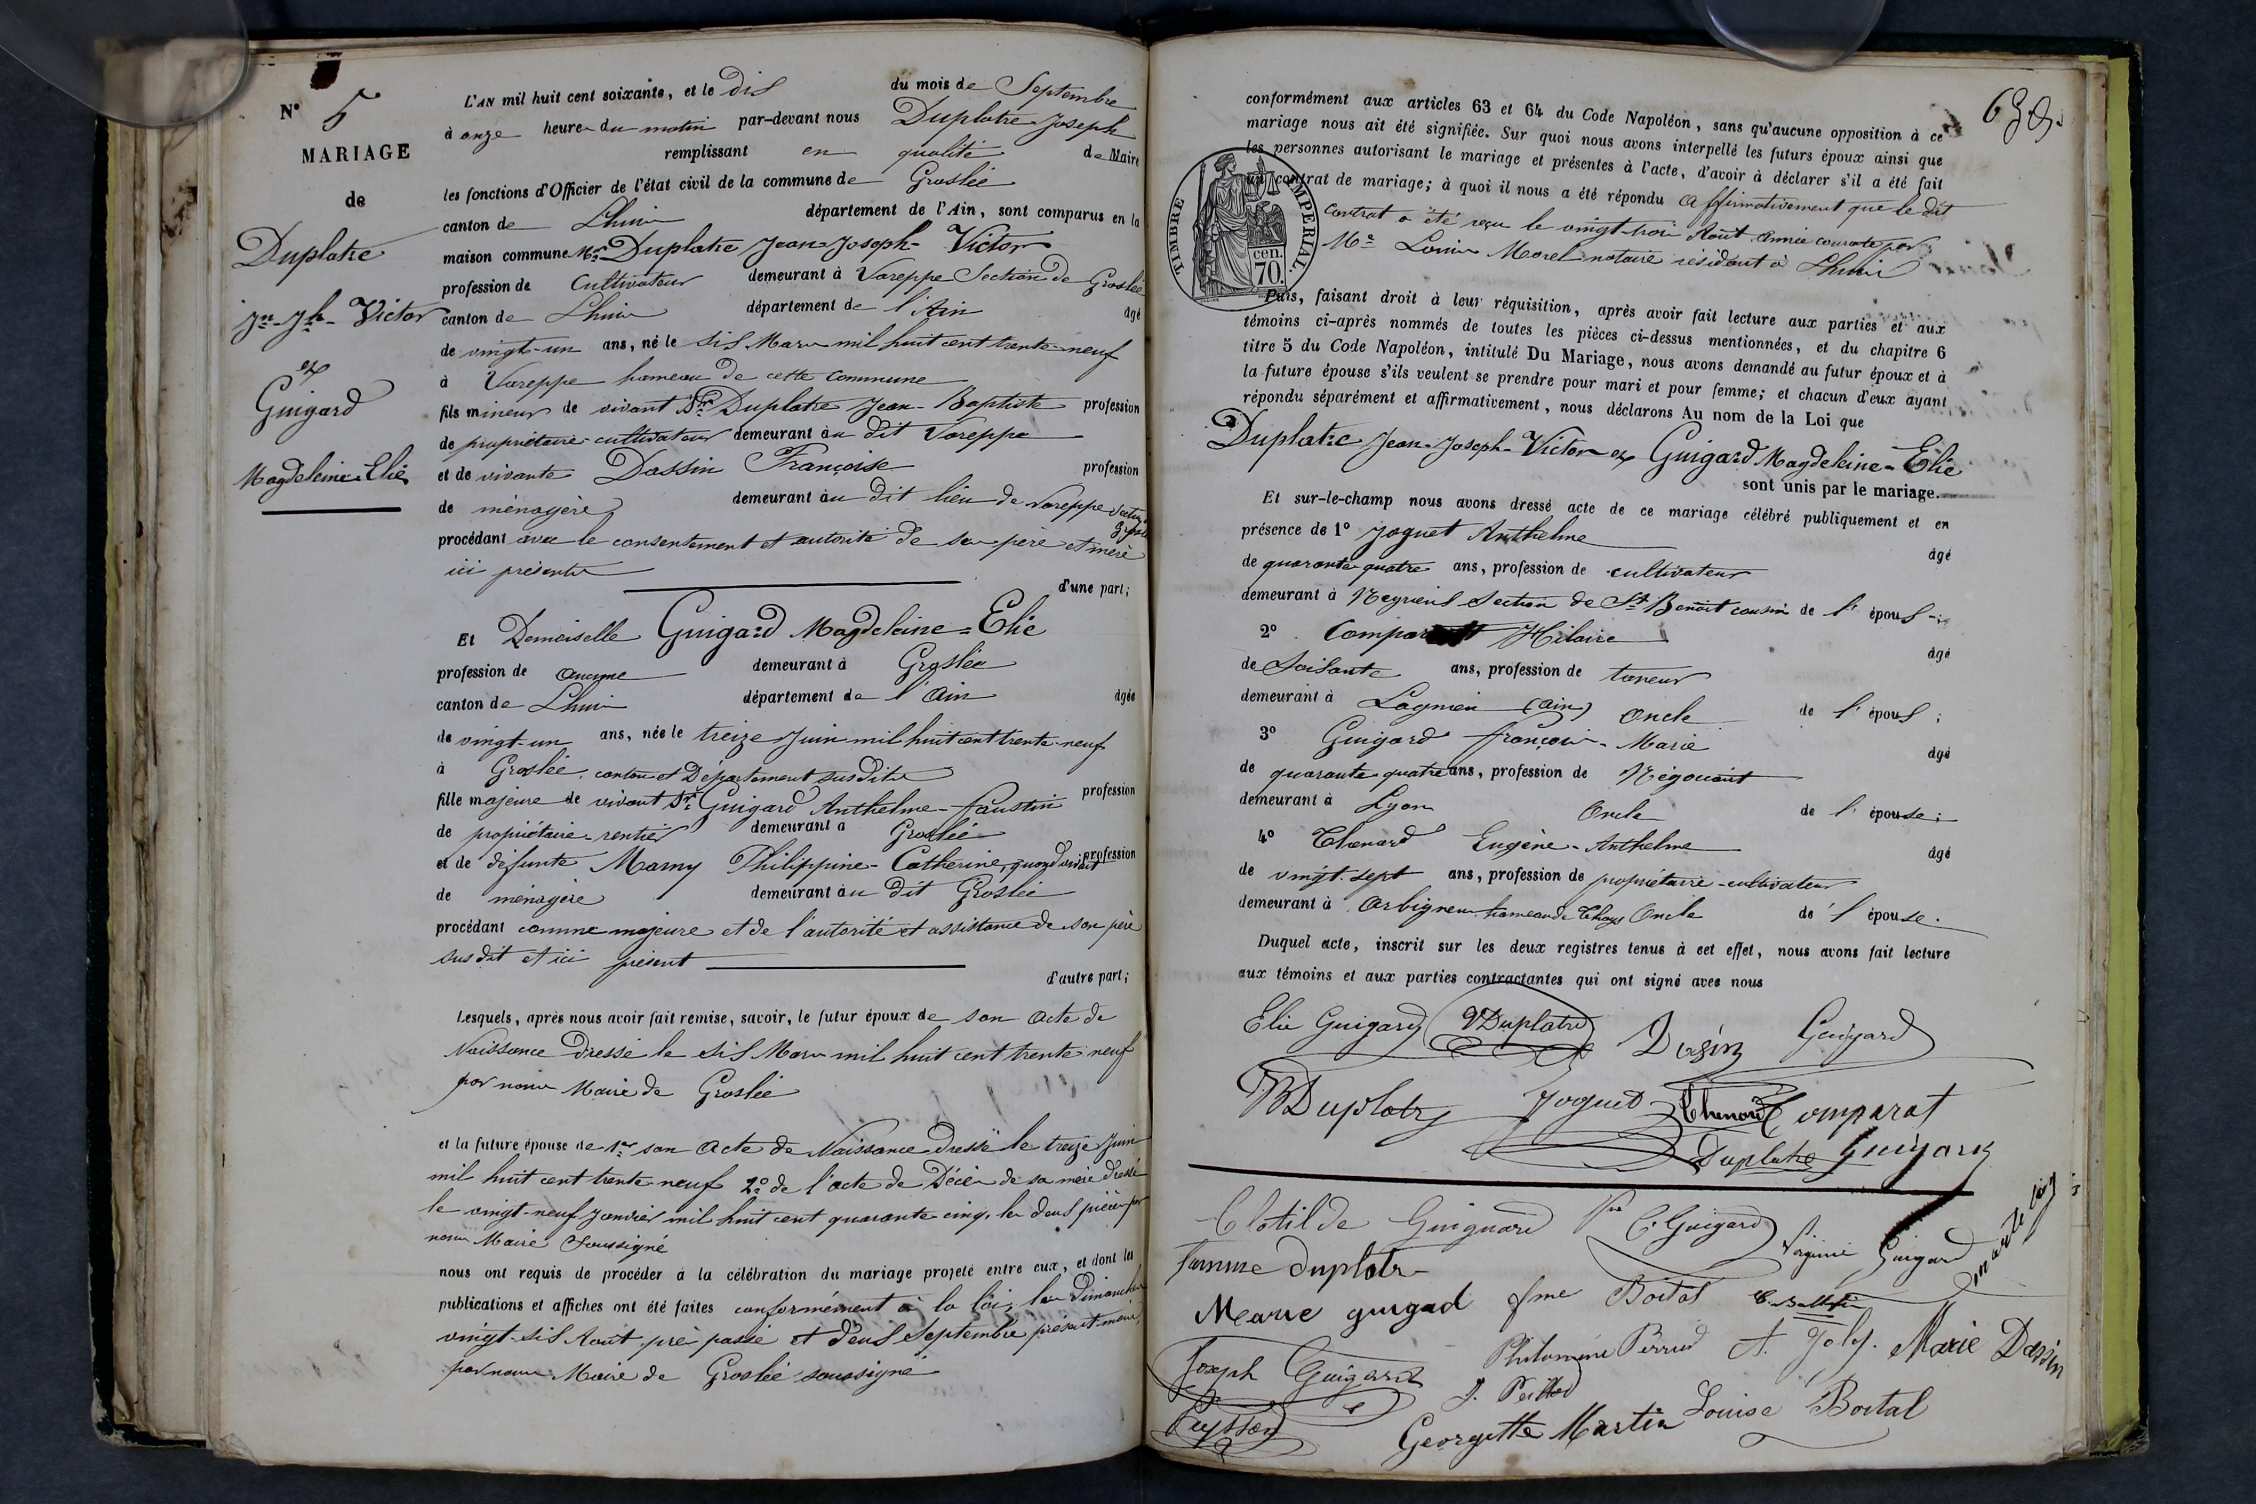 N° 5
MARIAGE
de
Duplatre
Jn-Jh-Victor
et
Guigard
Magdeleine-Elie
L'AN mil huit cent soixante, et le dix du mois de Septembre
à onze heures du matin par-devant nous Duplatre Joseph
remplissant en qualité de Maire
les fonctions d'Officier de l'état civil de la commune de Groslée
canton de Lhuis département de l'Ain, sont comparus en la
maison commune Mr Duplatre Jean-Joseph-Victor
profession de Cultivateur demeurant à Vareppe Section de Groslée
canton de Lhuis département de l'Ain âgé
de vingt-un ans, né le six Mars mil huit cent trente-neuf
à Vareppe hameau de cette commune
fils mineur de vivant Sr Duplatre Jean-Baptiste profession
de propriétaire-cultivateur demeurant au dit Vareppe
et de vivante Dassin Françoise profession
de ménagère demeurant au dit lieu de Vareppe
procédant avec le consentement et autorité de ses père et mère
ici présents
d'une part;
Et Demoiselle Guigard Magdeleine-Elie
profession de aucune demeurant à Groslée
canton de Lhuis département de l'Ain âgée
de vingt-un ans, née le treize Juin mil huit cent trente-neuf
à Groslée, canton et Département susdits
fille majeure de vivant Sr Guigard Anthelme-Faustin profession
de propriétaire-rentier demeurant à Groslée
et de défunte Marny Philippine-Catherine, quand vivait profession
de ménagère demeurant au dit Groslée
procédant comme majeure et de l'autorité et assistance de son père
sus dit et ici présent
d'autre part;
Lesquels, après nous avoir fait remise, savoir, le futur époux de son acte de
Naissance dressé le six Mars mil huit cent trente-neuf
par nous Maire de Groslée
et la future épouse de 1° son acte de Naissance dressé le treize Juin
mil huit cent trente neuf 2° de l'acte de Décès de sa mère dressé
le vingt-neuf Janvier mil huit cent quarante-cinq, les deux pièces par
nous Maire soussigné
nous ont requis de procéder à la célébration du mariage projeté entre eux, et dont les
publications et affiches ont été faites conformément à la loi, les Dimanches
vingt-six Août prés passé et deux Septembre présent mois,
par nous Maire de Groslée soussigné
conformément aux articles 63 et 64 du Code Napoléon, sans qu'aucune opposition à ce
mariage nous ait été signifiée. Sur quoi nous avons interpellé les futurs époux ainsi que
les personnes autorisant le mariage et présentes à l'acte, d'avoir à déclarer s'il a été fait
un contrat de mariage; à quoi il nous a été répondu affirmativement que le dit
contrat a été reçu le vingt-trois Août année courante par
Me Louis Morel notaire résidant à Lhuis
TIMBRE IMPERIAL
70 cen.
Puis, faisant droit à leur réquisition, après avoir fait lecture aux parties et aux
témoins ci-après nommés de toutes les pièces ci-dessus mentionnées, et du chapitre 6
titre 5 du Code Napoléon, intitulé Du Mariage, nous avons demandé au futur époux et à
la future épouse s'ils veulent se prendre pour mari et pour femme; et chacun d'eux ayant
répondu séparément et affirmativement, nous déclarons Au nom de la Loi que
Duplatre Jean-Joseph-Victor et Guigard Magdeleine-Elie
sont unis par le mariage.
Et sur-le-champ nous avons dressé acte de ce mariage célébré publiquement et en
présence de 1° Joguet Anthelme âgé
de quarante-quatre ans, profession de cultivateur
demeurant à Neyrieu Section de St Benoît cousin de l'époux
2° Comparat Hilaire âgé
de Soixante ans, profession de taneur
demeurant à Lagnieu (Ain) oncle de l'époux;
3° Guigard François-Marie âgé
de quarante quatre ans, profession de Négociant
demeurant à Lyon Oncle de l'épouse;
4° Thenard Eugène-Anthelme âgé
de vingt-sept ans, profession de propriétaire-cultivateur
demeurant à Arbignieu hameau de Thoys Oncle de l'épouse.
Duquel acte, inscrit sur les deux registres tenus à cet effet, nous avons fait lecture
aux témoins et aux parties contractantes qui ont signé avec nous
Elie Guigard VDuplatre Guigard
JBDuplatre Joguet Thenard Comparat
Duplatre Guigard
Clotilde Guiguard C. Guigard Virginie Guigard
femme duplatre
Marie guigard fme Boital
Joseph Guigard Philomène Perrud A. Joly. Marie Dassin
Peysson
Georgette Martin Louise Boital